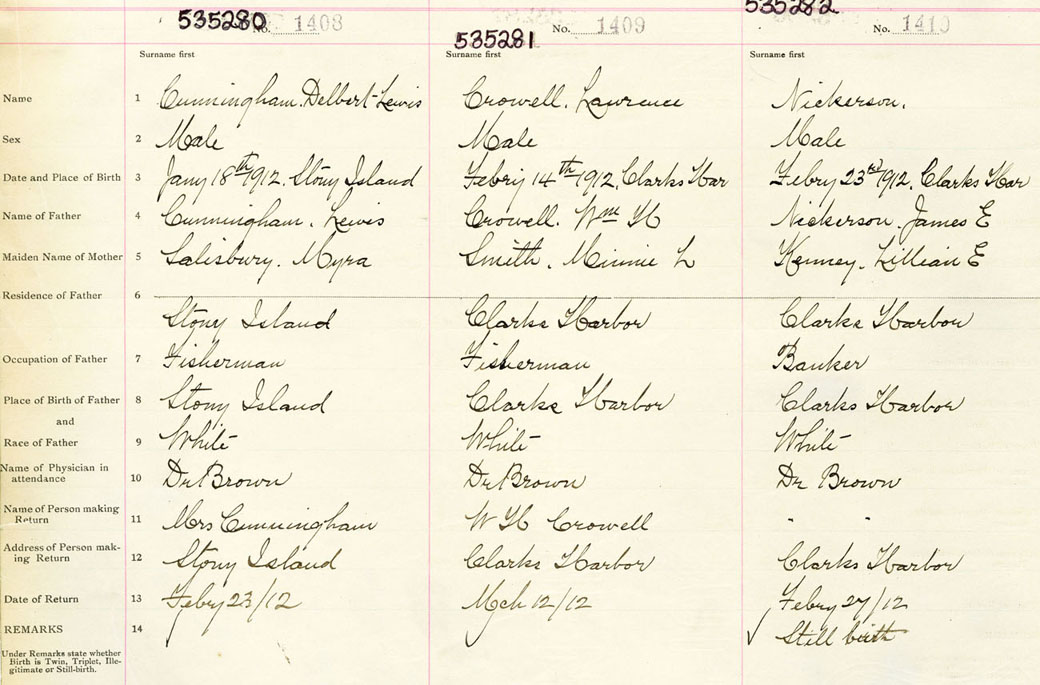 535280 No. 1408 535281 No. 1409 535282 No. 1410
Surname first Surname first Surname first
Name 1 Cunningham. Delbert Lewis Crowell. Lawrence Nickerson.
Sex 2 Male Male Male
Date and Place of Birth 3 Jany 18th 1912. Stony Island Febriy 14th 1912. Clarks Har Febry 23rd 1912. Clarks Har
Name of Father 4 Cunningham. Lewis Crowell. Wm H Nickerson. James E
Maiden Name of Mother 5 Salisbury. Myra Smith. Minnie L Kenney. Lillian E
Residence of Father 6
Stony Island Clarks Harbor Clarks Harbor
Occupation of Father 7 Fisherman Fisherman Banker
Place of Birth of Father 8 Stony Island Clarks Harbor Clarks Harbor
and
Race of Father 9 White White White
Name of Physician in
attendance 10 Dr Brown Dr Brown Dr Brown
Name of Person making
Return 11 Mrs Cunningham W H Crowell " "
Address of Person mak-
ing Return 12 Stony Island Clarks Harbor Clarks Harbor
Date of Return 13 Feby 23/12 Mch 12/12 Febry 27/12
REMARKS 14 ✓ ✓ ✓ Still birth
Under Remarks state whether
Birth is Twin, Triplet, Ille-
gitimate or Still-birth.